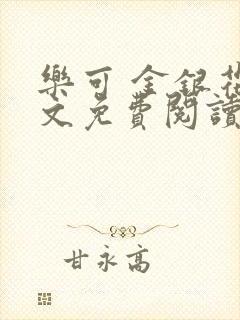 樂可 金銀花
文免費閱讀
甘永高